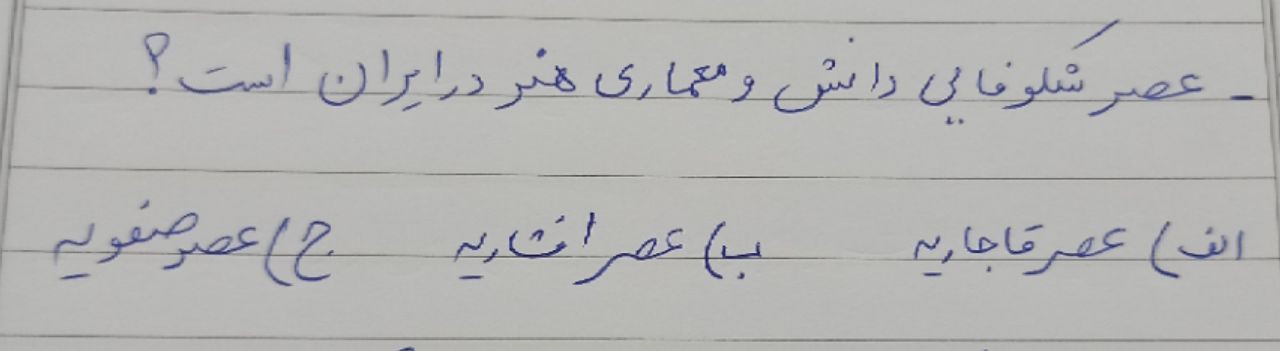 - عصر شکوفایی دانش و معماری هنر در ایران است؟
الف) عصر قاجاریه ب) عصر افشاریه ج) عصر صفویه